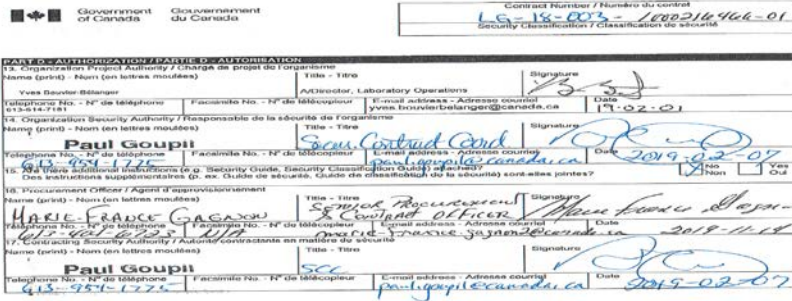 Government of Canada
Gouvernement du Canada
Contract Number / Numéro du contrat
LG-18-003-1000216466-01
Security Classification / Classification de sécurité
PART D - AUTHORIZATION / PARTIE D - AUTORISATION
13. Organization Project Authority / Chargé de projet de l'organisme
Name (print) - Nom (en lettres moulées) Title - Titre Signature
Yves Bouvier-Bélanger A/Director, Laboratory Operations
Telephone No. - N° de téléphone Facsimile No. - N° de télécopieur E-mail address - Adresse courriel Date
613-614-7181 yves.bouvierbelanger@canada.ca 19-02-01
14. Organization Security Authority / Responsable de la sécurité de l'organisme
Name (print) - Nom (en lettres moulées) Title - Titre Signature
Paul Goupil Secur. Contract Coord
Telephone No. - N° de téléphone Facsimile No. - N° de télécopieur E-mail address - Adresse courriel Date
613-954-1776 paul.goupil@canada.ca 2019-02-07
15. Are there additional instructions (e.g. Security Guide, Security Classification Guide) attached?
Des instructions supplémentaires (p. ex. Guide de sécurité, Guide de classification de la sécurité) sont-elles jointes?
No Non Yes Oui
16. Procurement Officer / Agent d'approvisionnement
Name (print) - Nom (en lettres moulées) Title - Titre Signature
MARIE-FRANCE GAGNON SENIOR PROCUREMENT & CONTRACT OFFICER
Telephone No. - N° de téléphone Facsimile No. - N° de télécopieur E-mail address - Adresse courriel Date
N/A 2019-11-14
17. Contracting Security Authority / Autorité contractante en matière de sécurité
Name (print) - Nom (en lettres moulées) Title - Titre Signature
Paul Goupil SCC
Telephone No. - N° de téléphone Facsimile No. - N° de télécopieur E-mail address - Adresse courriel Date
613-954-1776 paul.goupil@canada.ca 2019-02-07